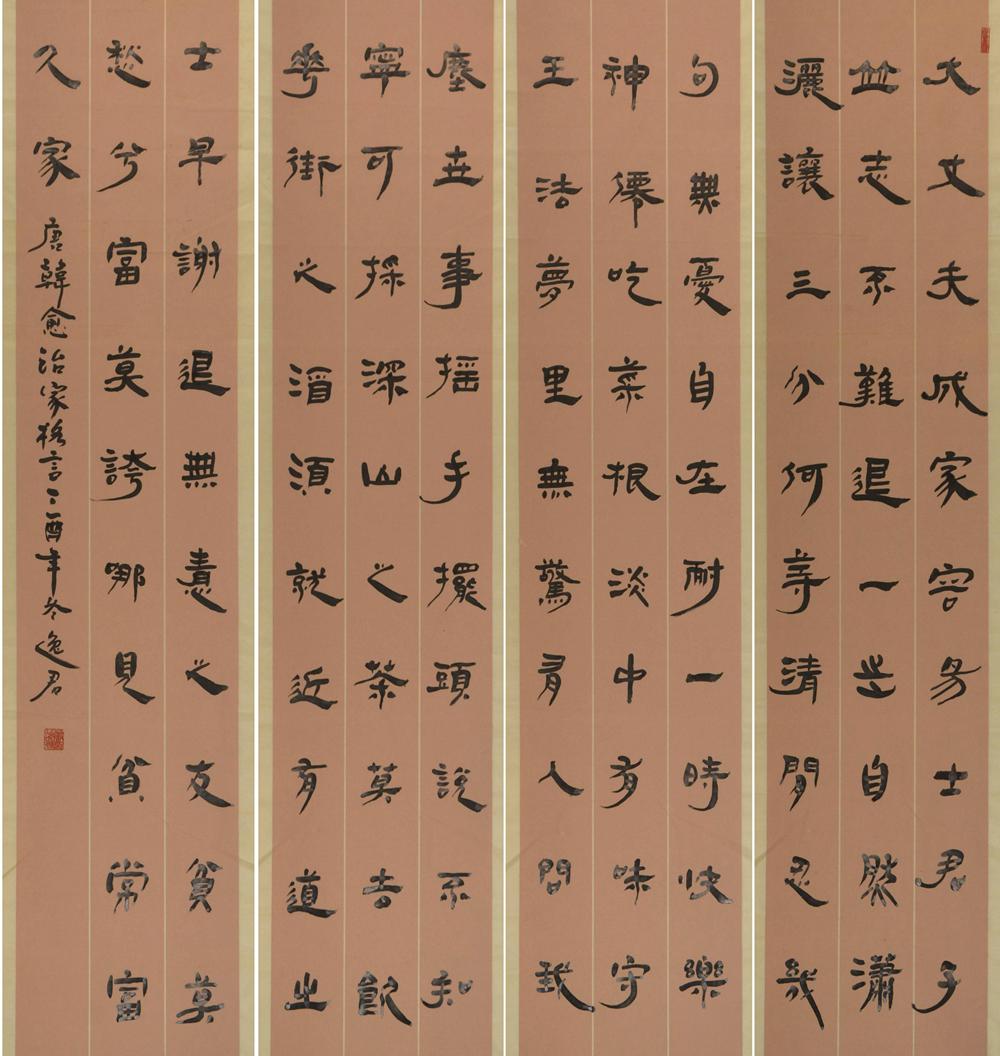 大丈夫成家容易士君子
立志不難退一步自然瀟
灑讓三分何等清閒忍幾
句無憂自在耐一時快樂
神仙吃菜根淡中有味守
王法夢里無驚有人問我
塵世事搖手擺頭說不知
寧可採深山之茶莫去飲
花街之酒須就近有道之
士早謝退無責之友貧莫
愁兮富莫誇哪見貧常富
久家
唐韓愈治家格言丁酉年冬逸君